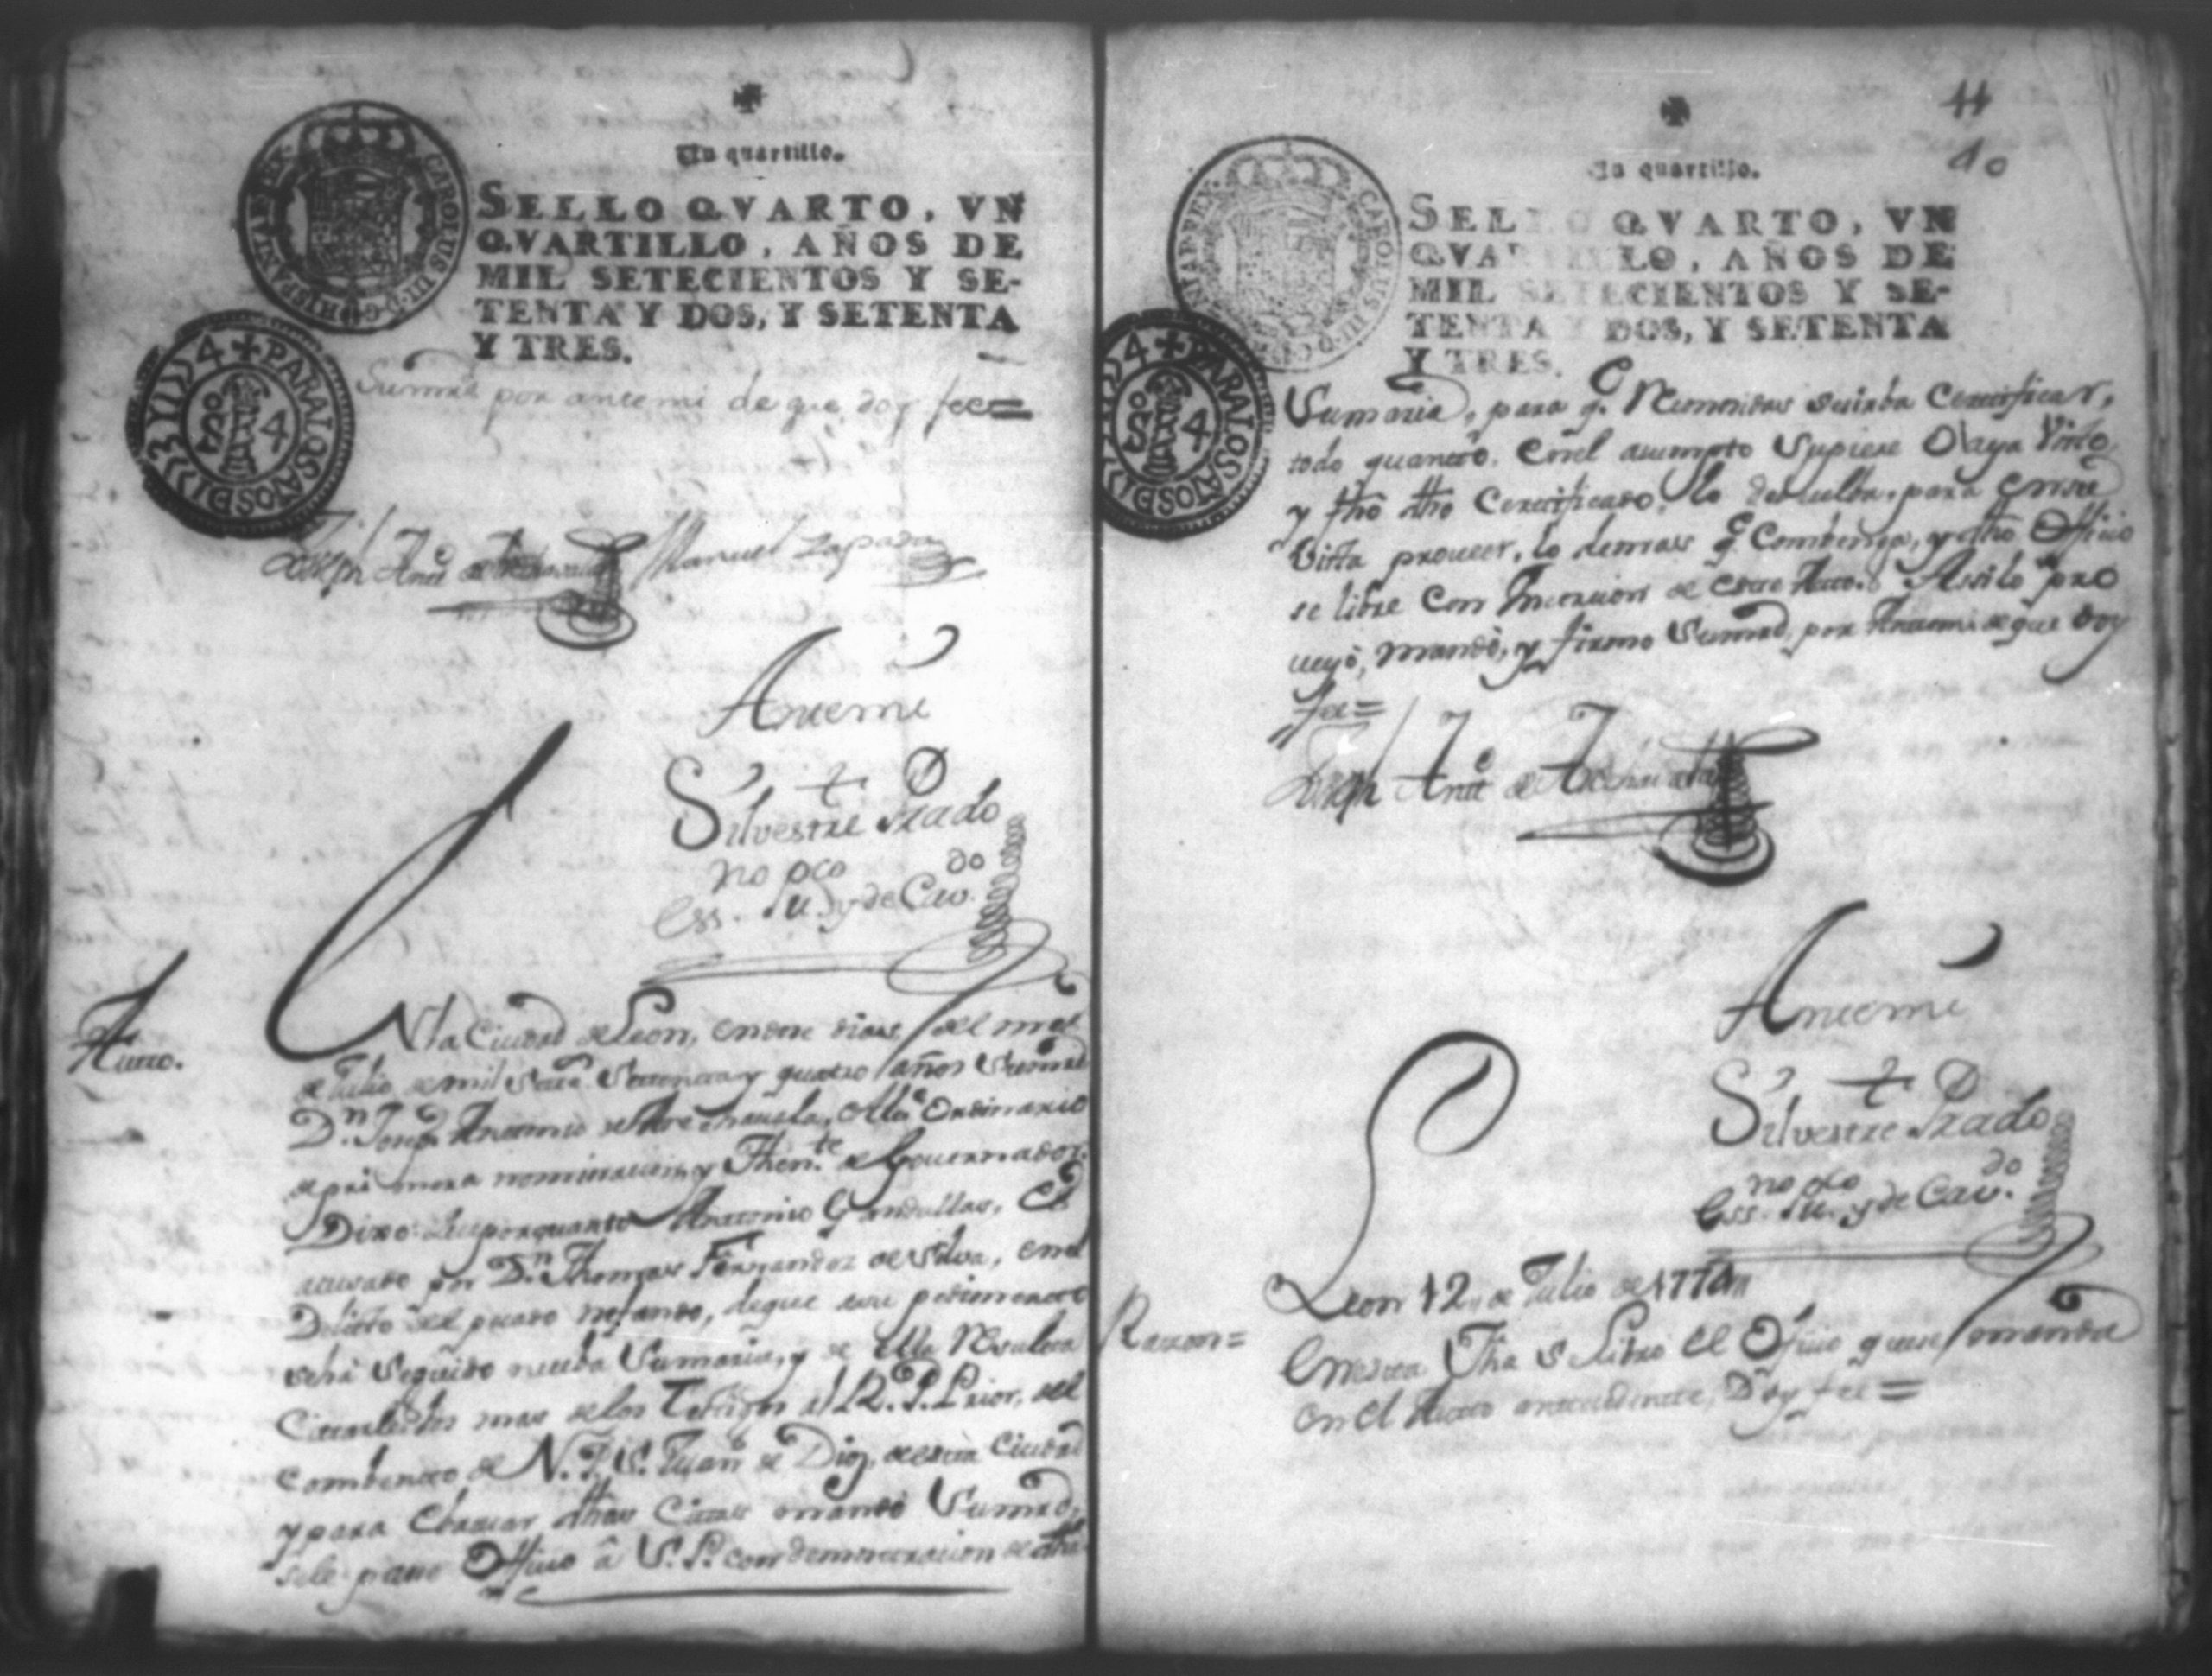 Un quartillo.
SELLO QVARTO, VN
QVARTILLO, AÑOS DE
MIL SETECIENTOS Y SE-
TENTA Y DOS, Y SETENTA
Y TRES.
CAROLUS III D G HISPANIAR REX
+ PARA LOS AÑOS DE 1773 Y 1774
Summrd por antemi de que doy fee=
Joseph Antto de Manuel Zapata
Antemi
Silvestre Prado
no pco do
Ess. Pu. y de Cav.
Autto.
En la Ciudad de Leon, en dose dias del mes
de Julio de mil Settс. Settenta y quatro años Sumrd
Dn. Joseph Antonio de Arechavala, Alle Ordinario
de primera nominacion, y Thente. de Governador.
Dixo: que por quanto Anttonio Gandullas, Es
acusado por Dn. Thomas Fernandez de Silva, en el
Delicto del pecado nefando, de que a su pedimento
se ha seguido nueba Sumaria, y de ella Resulta
Citado los mas de los Testigos al R. P. Prior, del
Combento de N. P. S. Juan de Dios, de esta Ciudad
y para Ebacuar dhas Citas mandó Sumrd,
se le pase Officio â S. P. con demonstracion de dha
11
10
Un quartillo.
SELLO QVARTO, VN
QVARTILLO, AÑOS DE
MIL SETECIENTOS Y SE-
TENTA Y DOS, Y SETENTA
Y TRES.
Sumaria, para q. Reconosidas se sirba Certificar,
todo quanto. En el asumpto Supiere Olaya Visto,
y fho dho Certificado, lo debuelba, para en su
Vista proveer, lo demas q. Combenga, y dho Officio
se libre Con Incercion de este Auto. Assi lo pro
veyó, mandó, y firmo Sumrd, por Antemi de que doy
fee=
Joseph Antto de Arechavala
Antemi
Silvestre Prado
no pco do
Ess. Pu. y de Cav.
Razon=
Leon 12,, de Julio de 1774,,
En esta fha se Libro El Oficio que se manda
en el Auto antecedente, Doy fee=